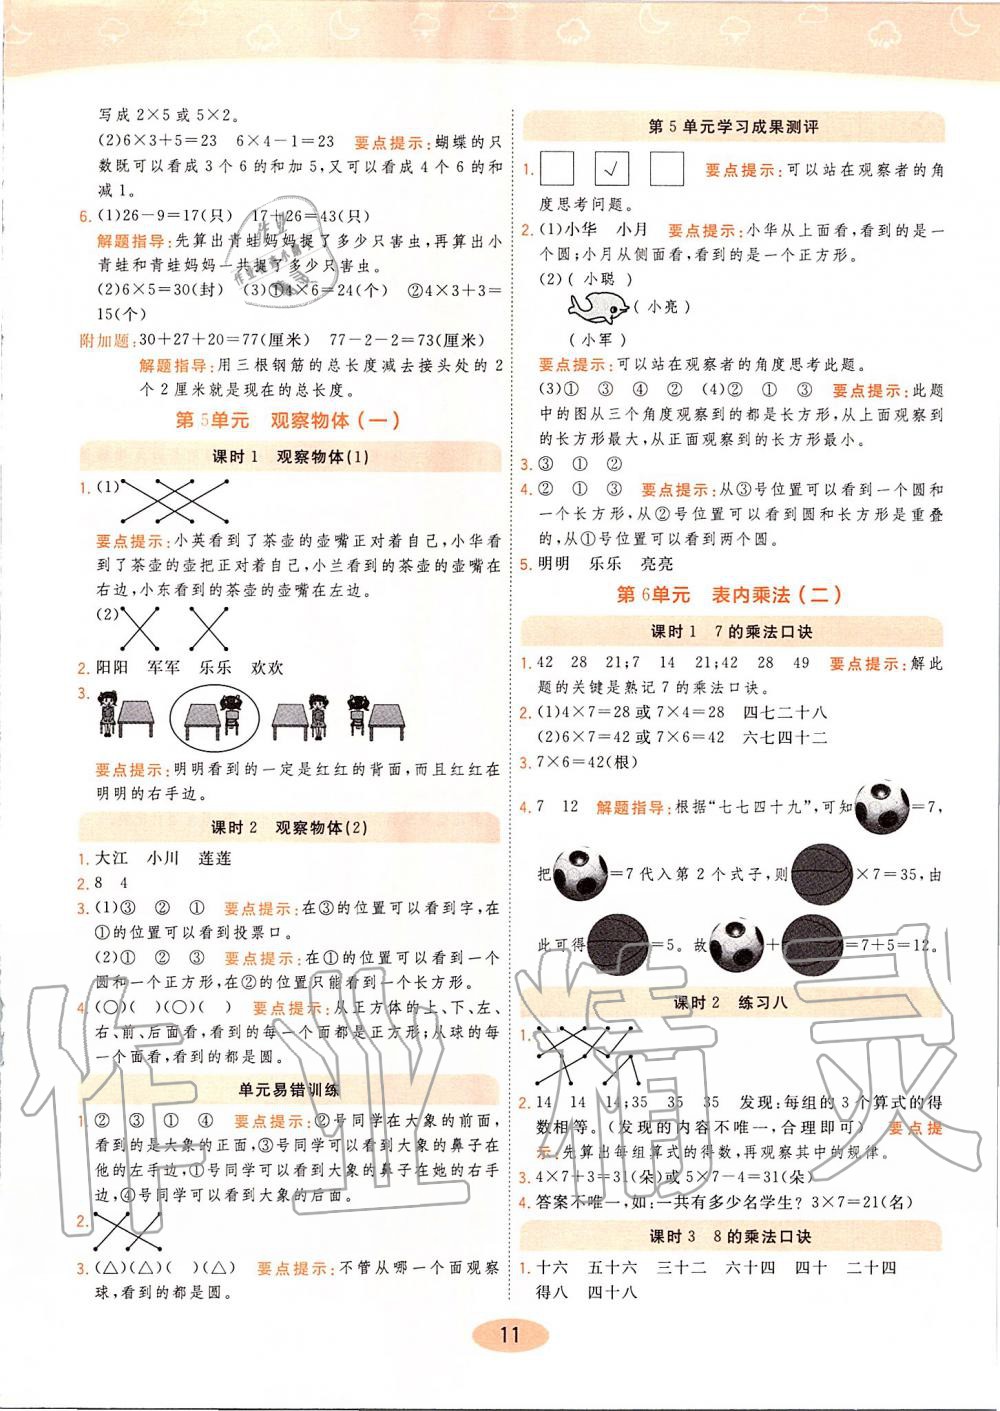 写成2×5或5×2。
(2)6×3+5=23　6×4-1=23　要点提示:蝴蝶的只
数既可以看成3个6的和加5,又可以看成4个6的和
减1。
6. (1)26-9=17(只)　17+26=43(只)
解题指导:先算出青蛙妈妈捉了多少只害虫,再算出小
青蛙和青蛙妈妈一共捉了多少只害虫。
(2)6×5=30(封)　(3)①4×6=24(个)　②4×3+3=
15(个)
附加题:30+27+20=77(厘米)　77-2-2=73(厘米)
解题指导:用三根钢筋的总长度减去接头处的2
个2厘米就是现在的总长度。
第5单元　观察物体(一)
课时1　观察物体(1)
1. (1)
要点提示:小英看到了茶壶的壶嘴正对着自己,小华看
到的茶壶的壶把正对着自己,小兰看到的茶壶的壶嘴在
右边,小东看到的茶壶的壶嘴在左边。
(2)
2. 阳阳　军军　乐乐　欢欢
3.
要点提示:明明看到的一定是红红的背面,而且红红在
明明的右手边。
课时2　观察物体(2)
1. 大江　小川　莲莲
2. 8　4
3. (1)③　②　①　要点提示:在③的位置可以看到字,在
①的位置可以看到投票口。
(2)①　②　③　要点提示:在①的位置可以看到一个
圆和一个正方形,在②的位置只能看到一个长方形。
4. (○)(　)(○)(　)　要点提示:从正方体的上、下、左、
右、前、后面看,看到的每一个面都是正方形;从球的每
一个面看,看到的都是圆。
单元易错训练
1. ②　③　①　④　要点提示:②号同学在大象的前面,
看到的是大象的正面,③号同学可以看到大象的鼻子在
他的左手边,①号同学可以看到大象的鼻子在她的右手
边,④号同学可以看到大象的后面。
2.
3. (△)(△)(　)(△)　要点提示:不管从哪一个面观察
球,看到的都是圆。
第5单元学习成果测评
1. √　要点提示:可以站在观察者的角
度思考问题。
2. (1)小华　小月　要点提示:小华从上面看,看到的是一
个圆;小月从侧面看,看到的是一个正方形。
(2)(小聪)
(小亮)
(小军)
要点提示:可以站在观察者的角度思考此题。
(3)①　③　④　②　(4)②　①　③　要点提示:此题
中的图从三个角度观察到的都是长方形,从上面观察到
的长方形最大,从正面观察到的长方形最小。
3. ③　①　②
4. ②　①　③　要点提示:从③号位置可以看到一个圆和
一个长方形,从②号位置可以看到圆和长方形是重叠
的,从①号位置可以看到两个圆。
5. 明明　乐乐　亮亮
第6单元　表内乘法(二)
课时1　7的乘法口诀
1. 42　28　21;7　14　21;42　28　49　要点提示:解此
题的关键是熟记7的乘法口诀。
2. (1)4×7=28或7×4=28　四七二十八
(2)6×7=42或7×6=42　六七四十二
3. 7×6=42(根)
4. 7　12　解题指导:根据“七七四十九”,可知=7,
把=7代入第2个式子,则×7=35,由
此可得=5。故+=7+5=12。
课时2　练习八
1.
2. 14　14　14;35　35　35　发现:每组的3个算式的得
数相等。(发现的内容不唯一,合理即可)　要点提
示:先算出每组算式的得数,再观察其中的规律。
3. 4×7+3=31(朵)或5×7-4=31(朵)
4. 答案不唯一,如:一共有多少名学生?3×7=21(名)
课时3　8的乘法口诀
1. 十六　五十六　三十二　六十四　四十　二十四
得八　四十八
11
作业精灵